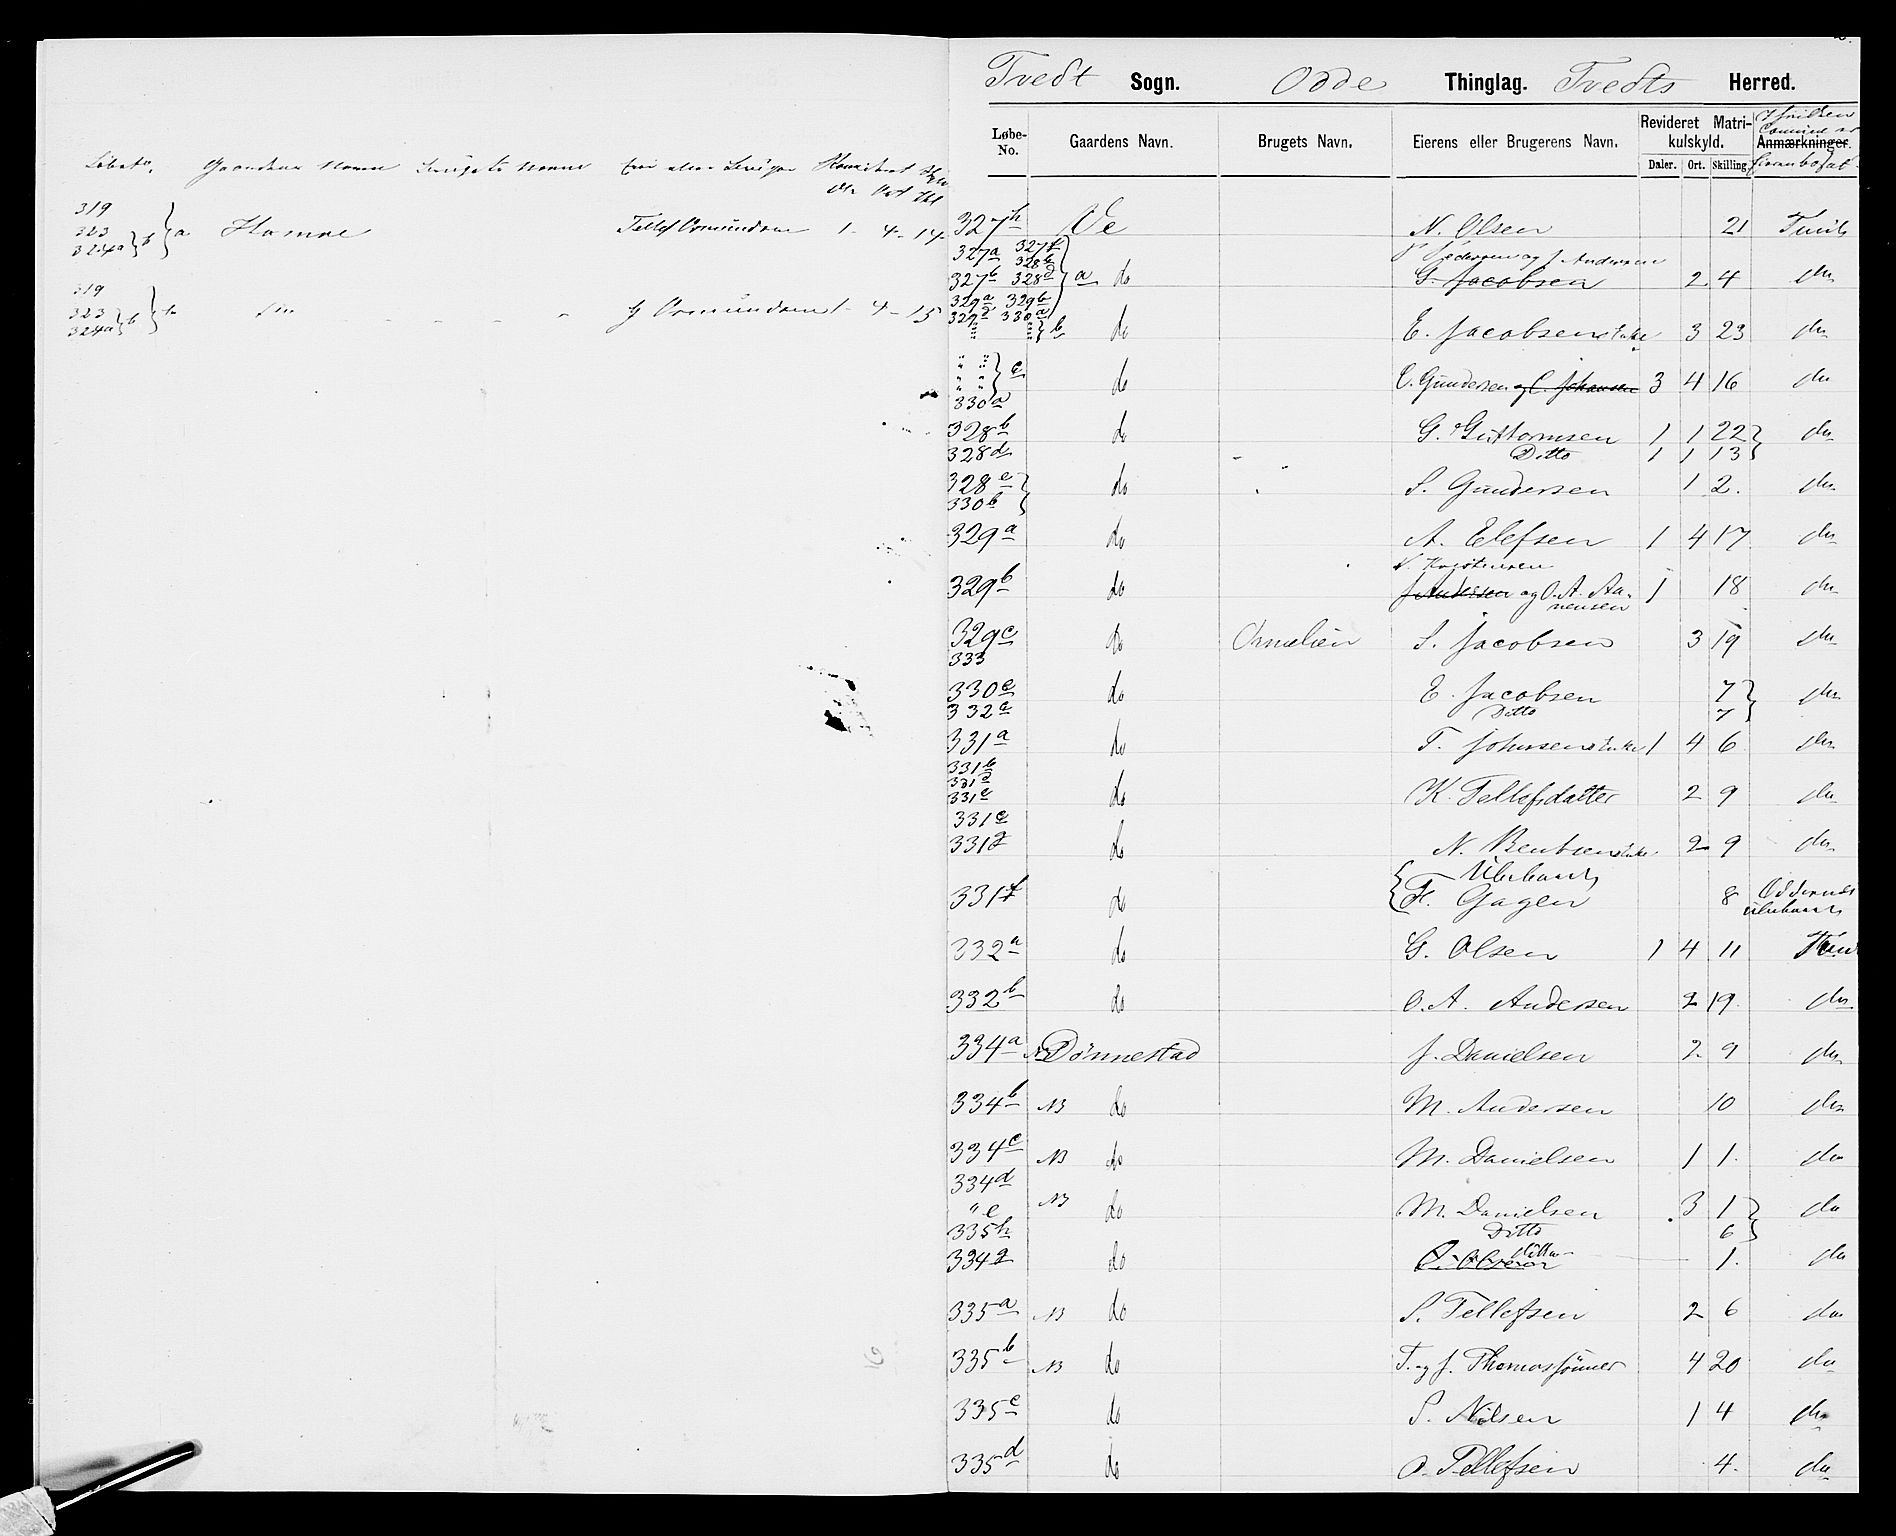 Løbe Gaardens Navn Brugets Navn
319
323 } b } a Hamre Tellef Osmundsen 1 - 4 - 14
324a
319
323 } b } b Do G Osmundsen 1 - 4 - 15
324a
Tvedt Sogn. Odde Thinglag. Tvedts Herred.
Løbe-No. Gaardens Navn. Brugets Navn. Eierens eller Brugerens Navn. Revideret Matrikulskyld. Anmærkninger.
Daler. Ort. Skilling
327h Ve N. Olsen 21
P Pedersen og J Andersen
327a 327f
328b
327b 328d } a do G. Jacobsen 2 4 do
329a 329b
329d 330a
" " } b do E. Jacobsens Enke 3 23 do
" " } c do E. Gundersen og C. Johansen 3 4 16 do
330a
328b do G. Guttormsen 1 1 22 } do
328d Ditto 1 1 13
328e } do S. Gundersen 1 2. do
330b
329a do A. Elefsen 1 4 17 do
329b do J Andersen og O. A. Aanensen 1 18 do
329c do S. Jacobsen 3 19 do
333
330e do E. Jacobsen 7 } do
332c Ditto 7
331a do T. Johnsens Enke 1 4 6 do
331b
331d
331e do K. Tellefsdatter 2 9 do
331c
331g do N. Bentsens Enke 2 9 do
331f do Gagen 8
332a do G. Olsen 1 4 11
332b do O. A. Andersen 2 19. do
334a NB Dönnestad J. Danielsen 2 9 do
334b NB do M. Andersen 10 do
334c NB do M. Danielsen 1 1. do
334d
" e NB do M. Danielsen 3 1 } do
335h Ditto 6
334g do O. Olsen 1. do
335a NB do S. Tellefsen 2 6 do
335b NB do T. og J. Thomassönner 4 20 do
335c do S. Nilsen 1 4 do
335d do O. Tellefsen 4. do